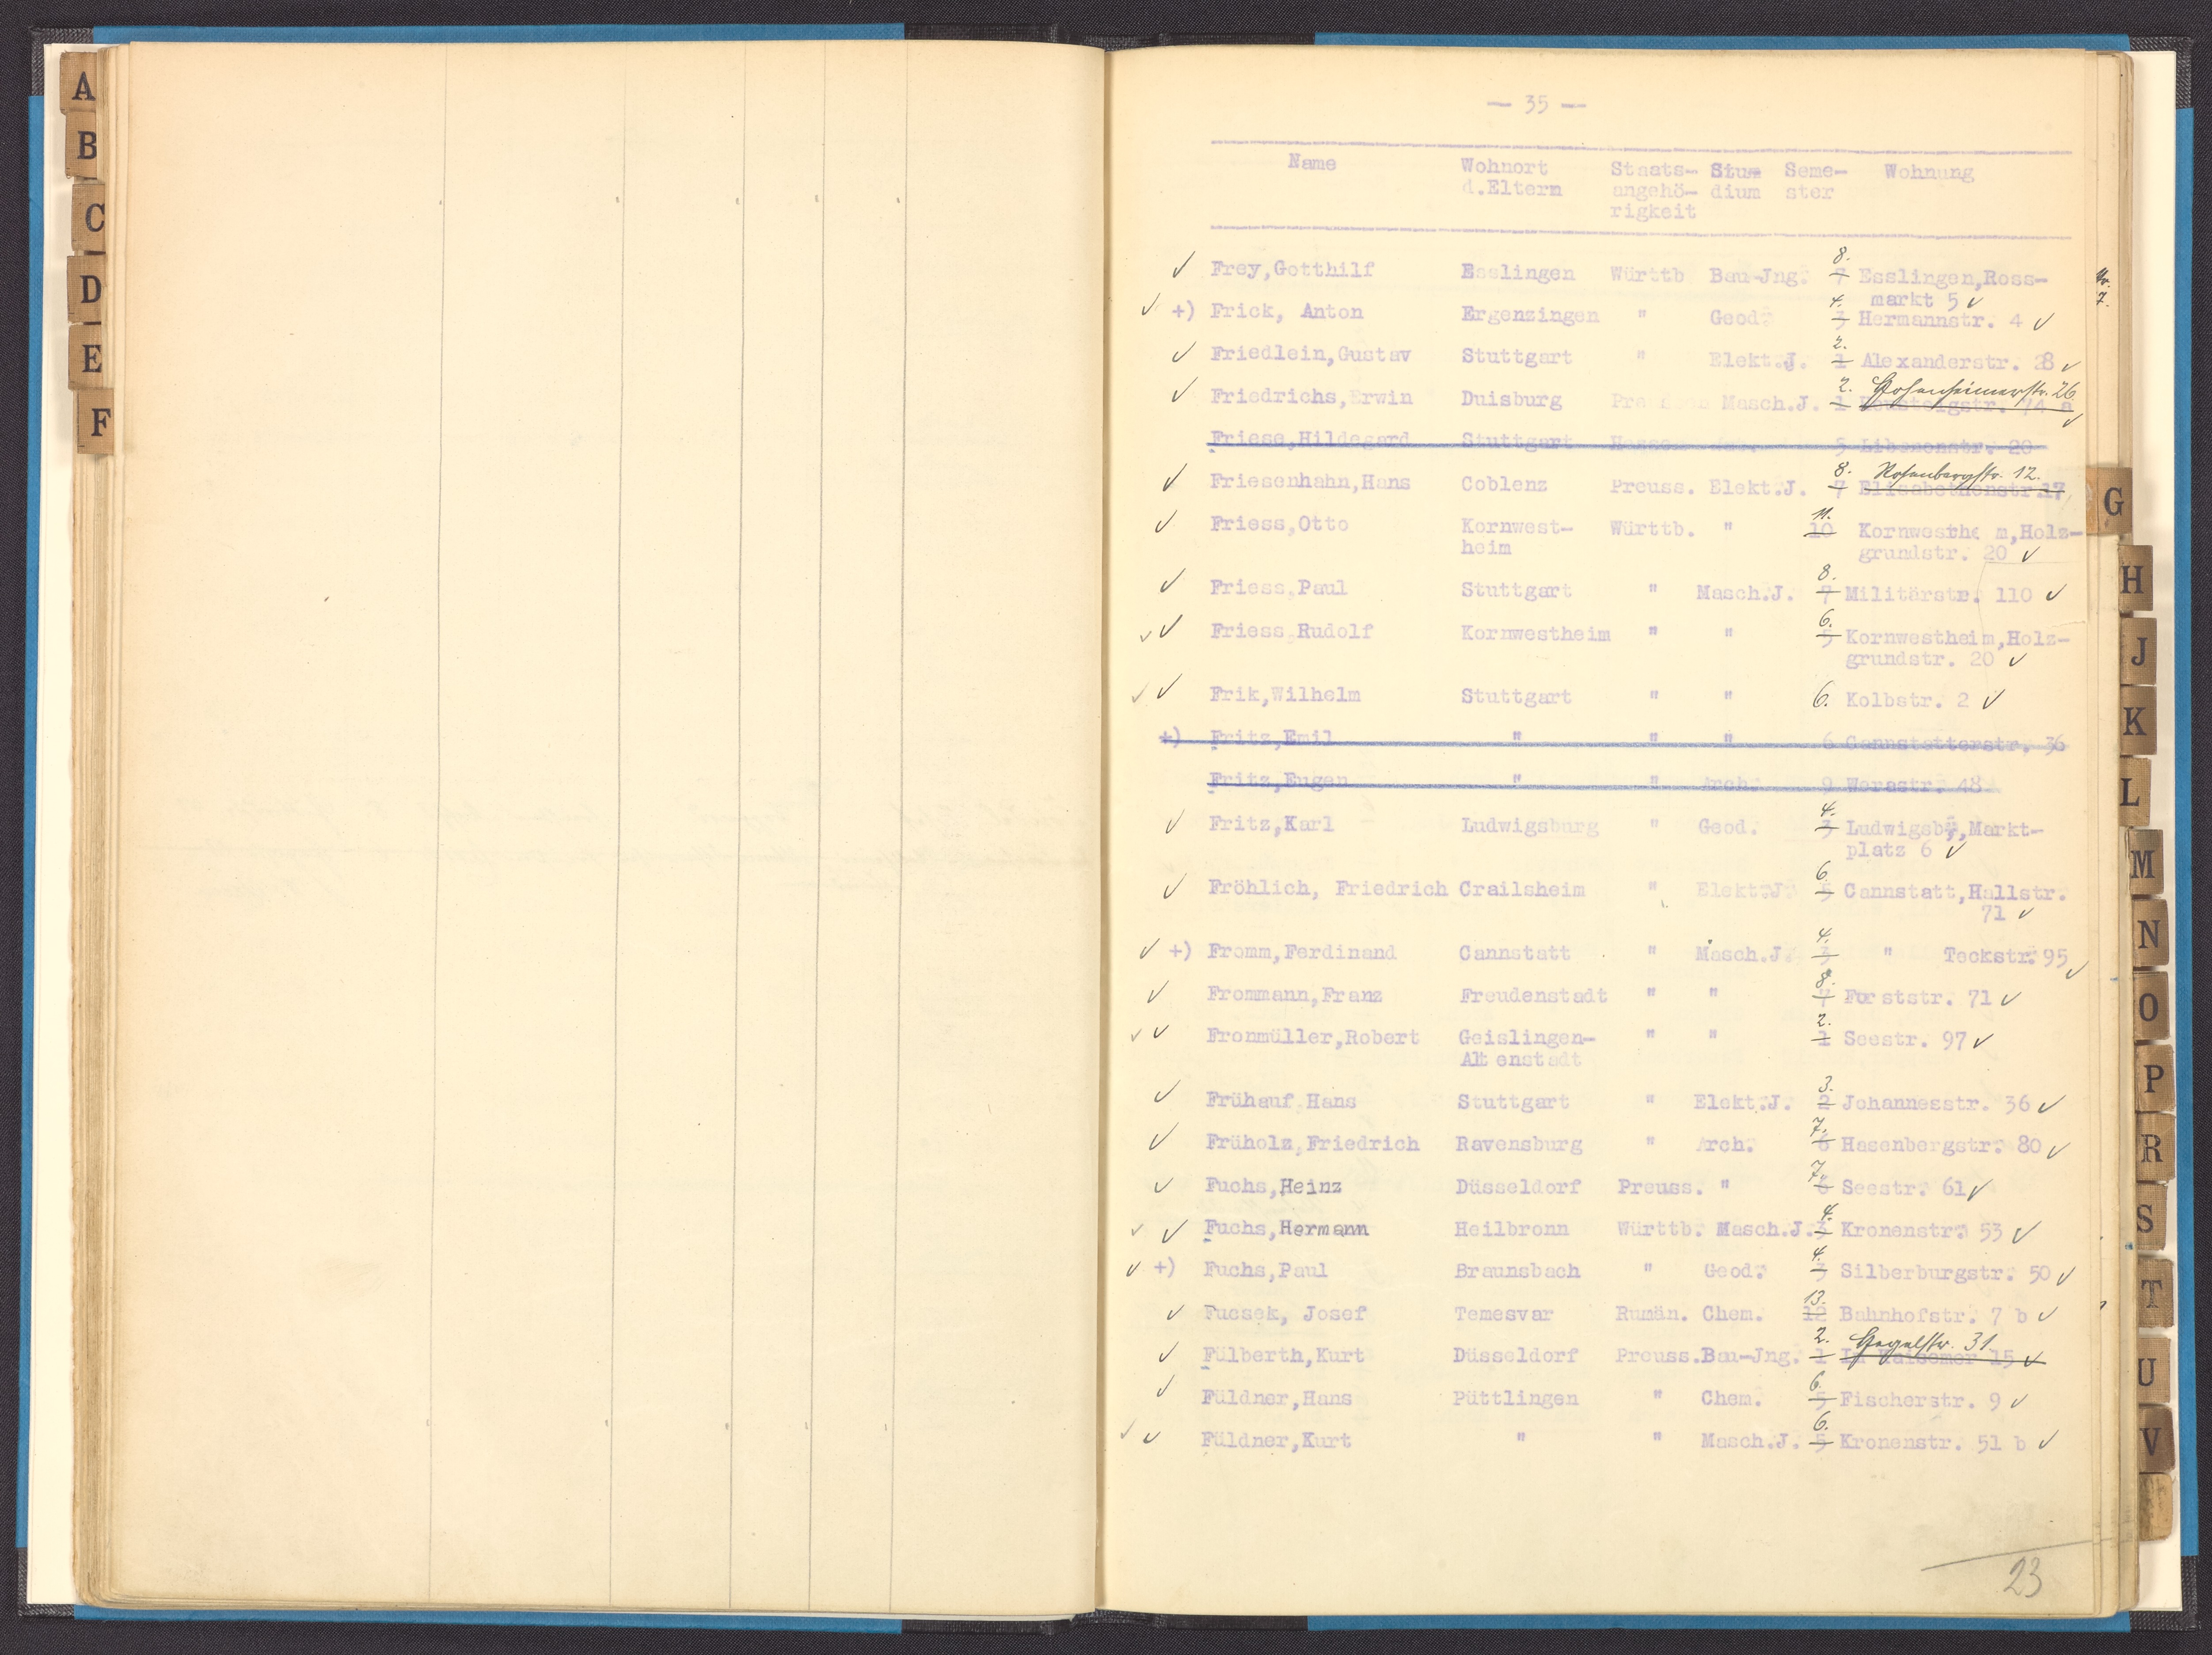 A
B
C
D
E
F
— 35 —
Name Wohnort Staats- Stum Seme- Wohnung
d.Eltern angehö- dium ster
rigkeit
8.
✓ Frey,Gotthilf Esslingen Württb Bau-Jng. 7 Esslingen,Ross-
markt 5 ✓
4.
✓ +) Frick, Anton Ergenzingen " Geod. 3 Hermannstr. 4 ✓
2.
✓ Friedlein,Gustav Stuttgart " Elekt.J. 1 Alexanderstr. 28 ✓
2.
✓ Friedrichs,Erwin Duisburg Masch.J. 1 14 a ✓
Friese,Hildegard Stuttgart 5 20
8. Rosenbergstr. 12.
✓ Friesenhahn,Hans Coblenz Preuss. Elekt.J. 7 Elisabethenstr.17
11.
✓ Friess,Otto Kornwest- Württb. " 10 Kornwesthe m,Holz-
heim grundstr. 20 ✓
8.
✓ Friess,Paul Stuttgart " Masch.J. 7 Militärstr. 110 ✓
6.
✓✓ Friess,Rudolf Kornwestheim " " 5 Kornwestheim,Holz-
grundstr. 20 ✓
✓✓ Frik,Wilhelm Stuttgart " " 6. Kolbstr. 2 ✓
+) Fritz,Emil " " " 6 Cannstatterstr. 36
Fritz,Eugen " " Arch. 9 Werastr. 48
4.
✓ Fritz,Karl Ludwigsburg " Geod. 3 Ludwigsbg,Markt-
platz 6 ✓
6.
✓ Fröhlich, Friedrich Crailsheim " Elekt.J. 5 Cannstatt,Hallstr.
71 ✓
4.
✓ +) Fromm,Ferdinand Cannstatt " Masch.J. 3 " Teckstr.95 ✓
8.
✓ Frommann,Franz Freudenstadt " " 7 Forststr. 71 ✓
2.
✓✓ Fronmüller,Robert Geislingen- " " 1 Seestr. 97 ✓
Altenstadt
3.
✓ Frühauf,Hans Stuttgart " Elekt.J. 2 Johannesstr. 36 ✓
7.
✓ Früholz,Friedrich Ravensburg " Arch. 6 Hasenbergstr. 80 ✓
7.
✓ Fuchs,Heinz Düsseldorf Preuss. " 6 Seestr. 61 ✓
4.
✓✓ Fuchs,Hermann Heilbronn Württb. Masch.J. 3 Kronenstr. 53 ✓
4.
✓ +) Fuchs,Paul Braunsbach " Geod. 3 Silberburgstr. 50 ✓
13.
✓ Fucsek, Josef Temesvar Rumän. Chem. 12 Bahnhofstr. 7 b ✓
2. Hegelstr. 31.
✓ Fülberth,Kurt Düsseldorf Preuss.Bau-Jng. 1 15 ✓
6.
✓ Füldner,Hans Püttlingen " Chem. 5 Fischerstr. 9 ✓
6.
✓✓ Füldner,Kurt " " Masch.J. 5 Kronenstr. 51 b ✓
23
G
H
J
K
L
M
N
O
P
R
S
T
U
V